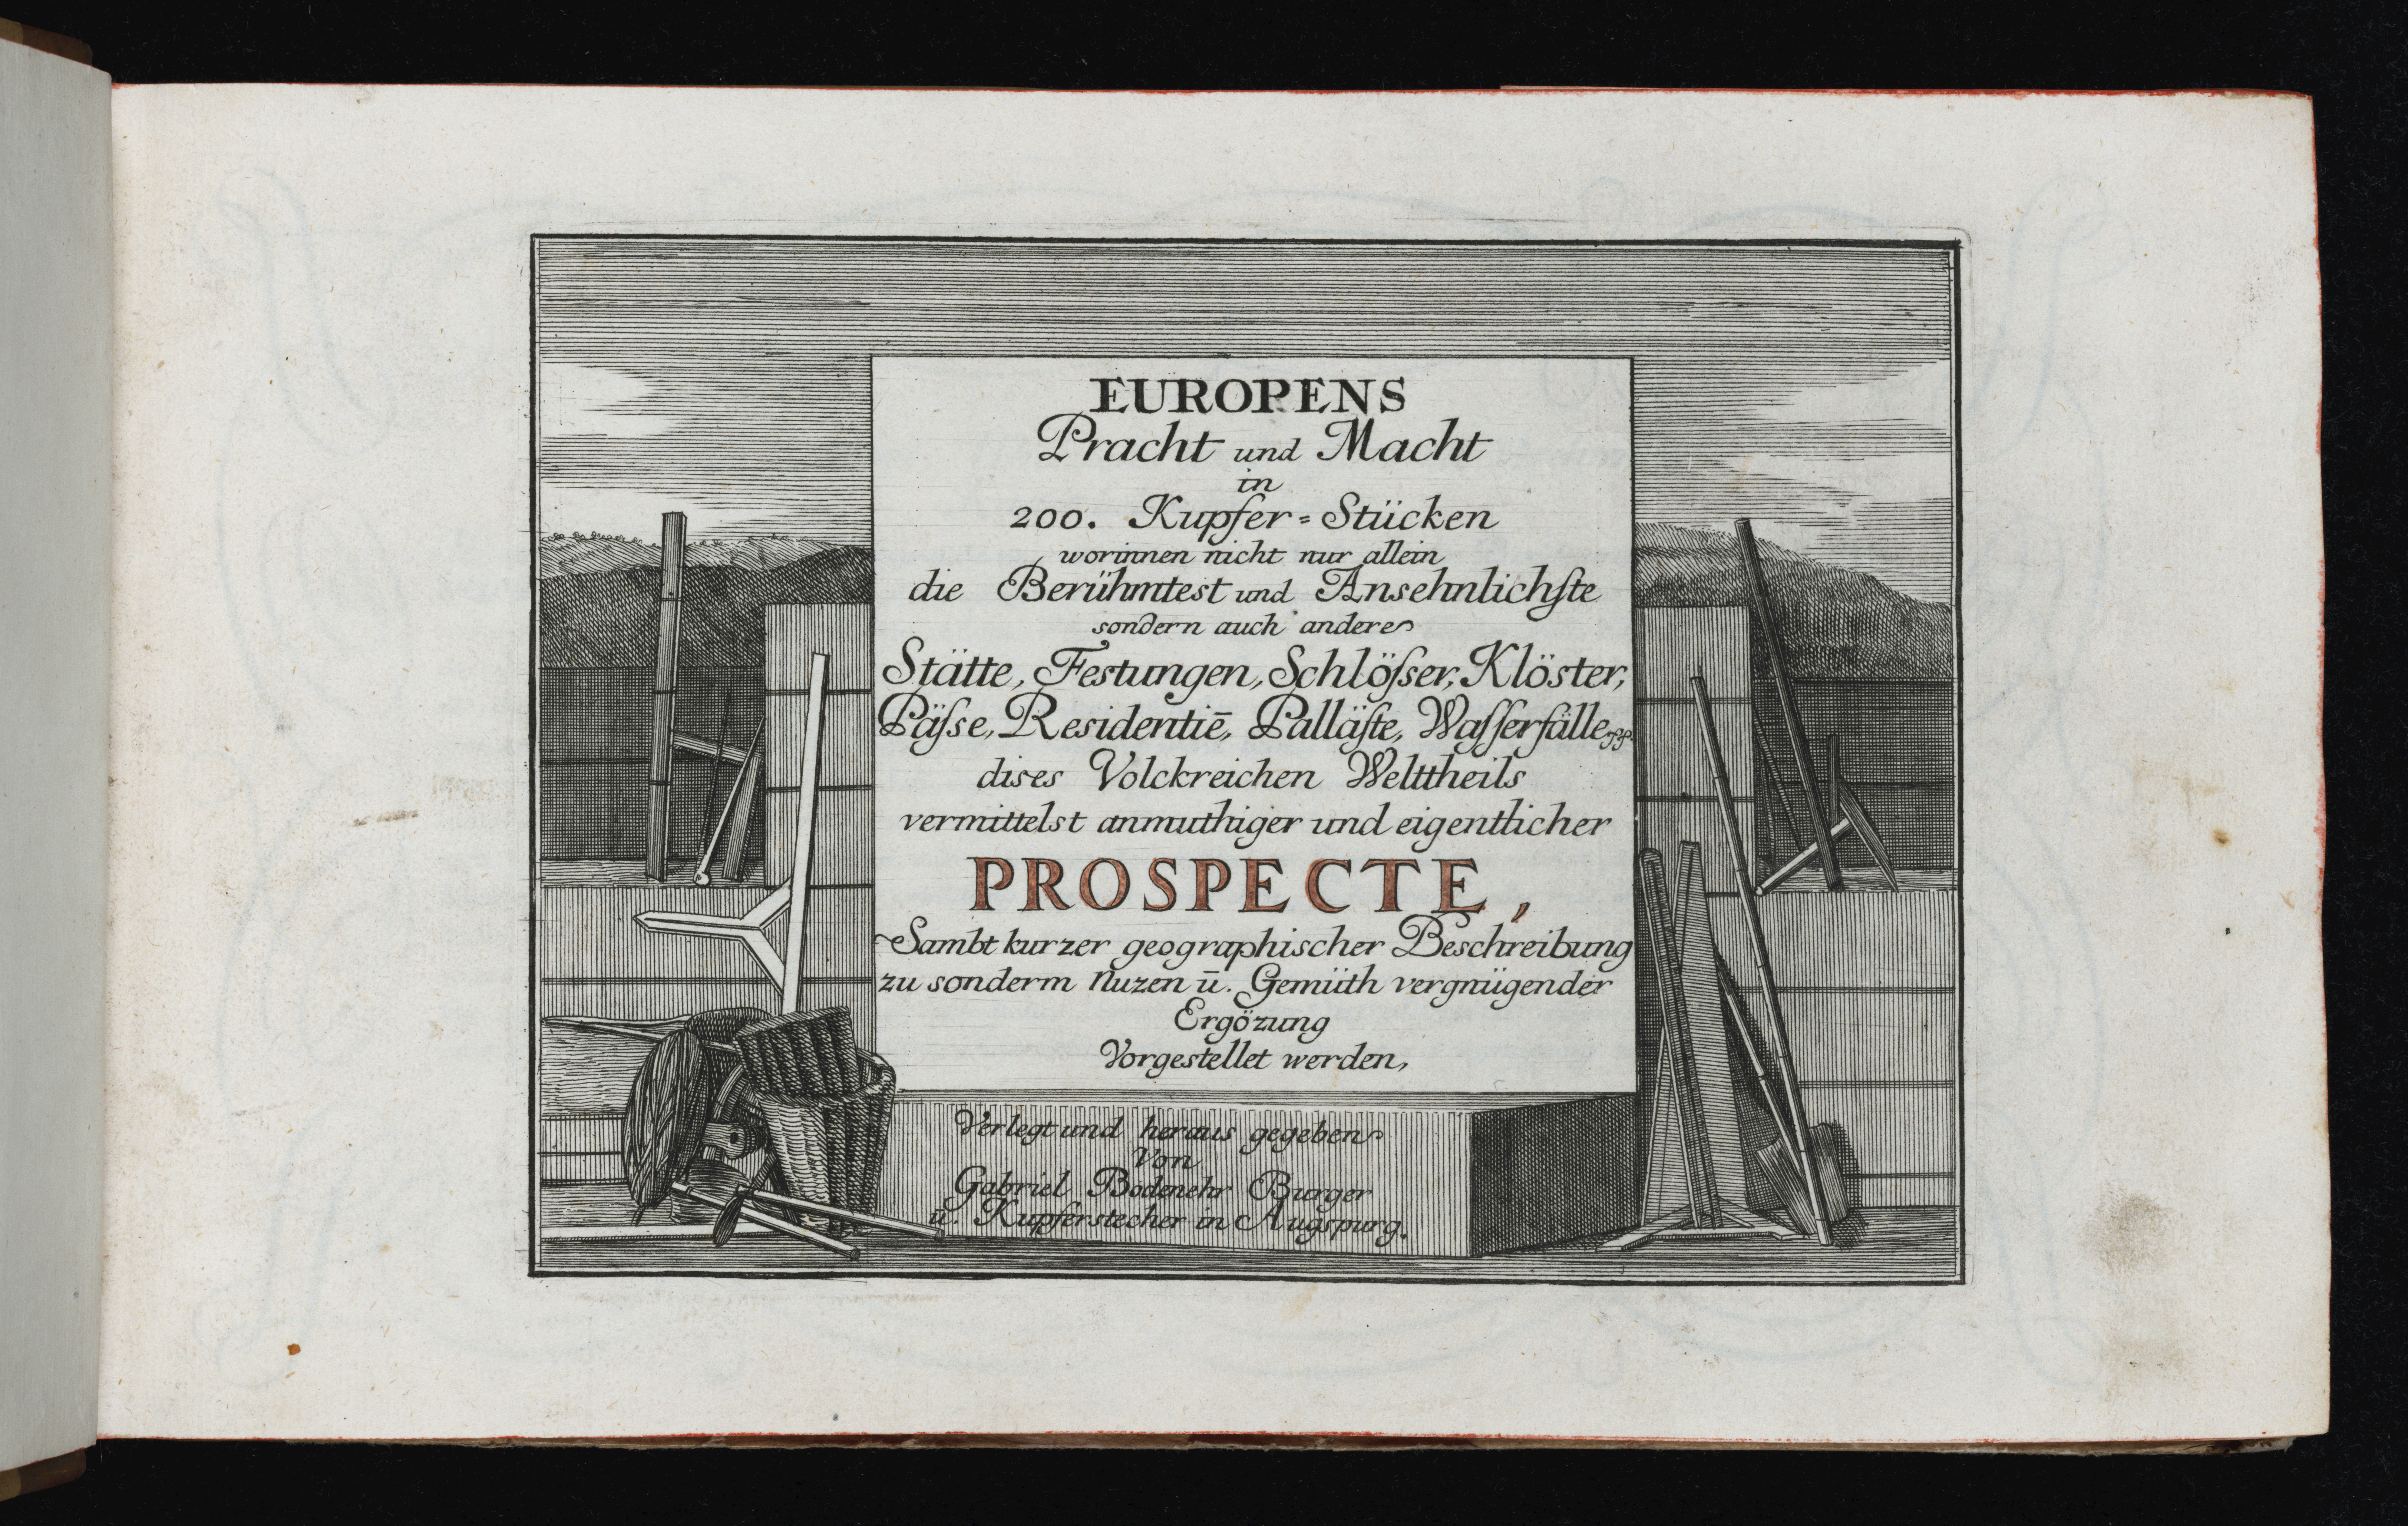 EUROPENS
Pracht und Macht
in
200. Kupfer=Stücken
worinnen nicht nur allein
die Berühmtest und Ansehnlichſte
sondern auch andere
Stätte, Festungen, Schlöſser, Klöster,
Päſse, Residentiē, Palläſte, Waſſerfälle
dises Volckreichen Welttheils
vermittelst anmuthiger und eigentlicher
PROSPECTE,
Sambt kurzer geographischer Beschreibung
zu sonderm Nuzen ū. Gemüth vergnügender
Ergözung
Vorgestellet werden,
Verlegt und heraus gegeben
Von
Gabriel Bodenehr Burger
u. Kupferstecher in Augspurg.